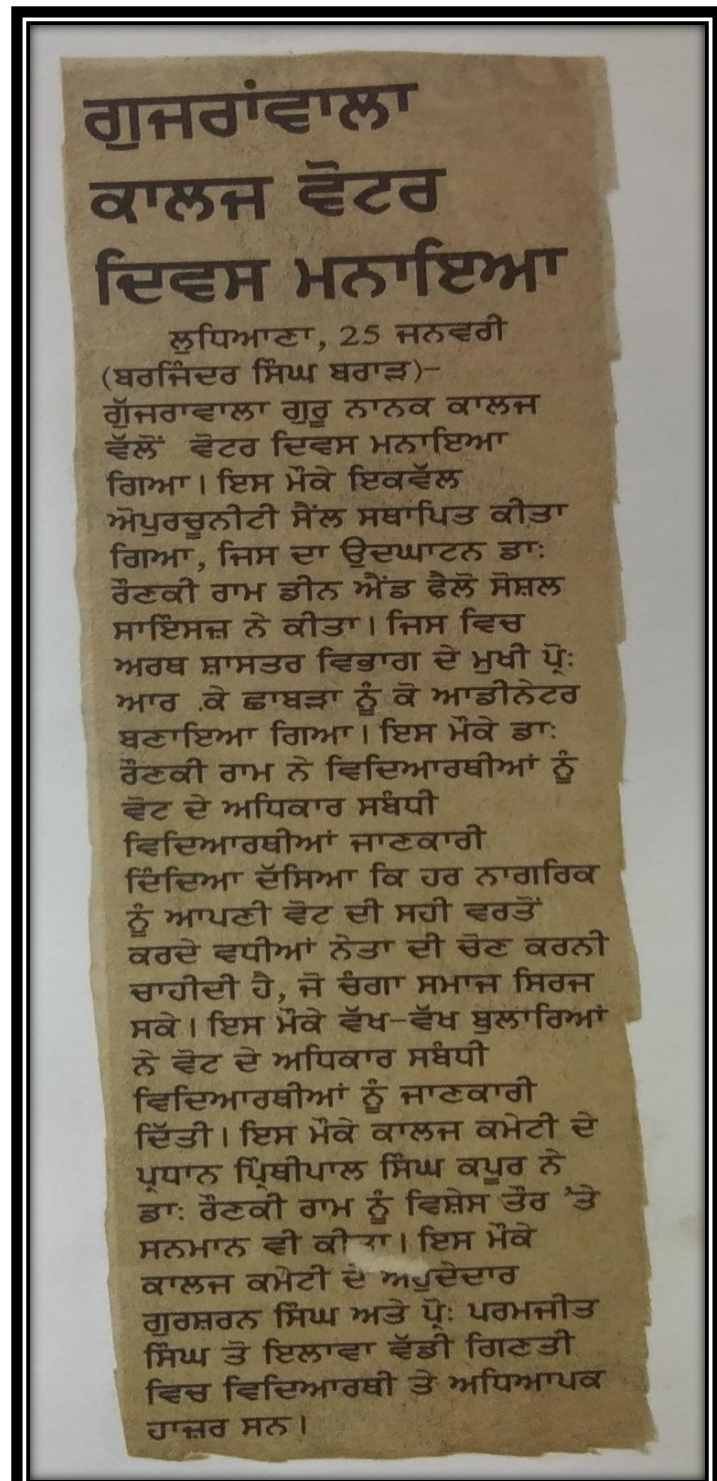 ਗੁਜਰਾਂਵਾਲਾ
ਕਾਲਜ ਵੋਟਰ
ਦਿਵਸ ਮਨਾਇਆ
ਲੁਧਿਆਣਾ, 25 ਜਨਵਰੀ
(ਬਰਜਿੰਦਰ ਸਿੰਘ ਬਰਾੜ)-
ਗੁੱਜਰਾਵਾਲਾ ਗੁਰੂ ਨਾਨਕ ਕਾਲਜ
ਵੱਲੋਂ ਵੋਟਰ ਦਿਵਸ ਮਨਾਇਆ
ਗਿਆ। ਇਸ ਮੌਕੇ ਇਕਵੱਲ
ਔਪੁਰਚੂਨੀਟੀ ਸੈੱਲ ਸਥਾਪਿਤ ਕੀਤਾ
ਗਿਆ, ਜਿਸ ਦਾ ਉਦਘਾਟਨ ਡਾ:
ਰੌਣਕੀ ਰਾਮ ਡੀਨ ਐਂਡ ਫੈਲੋ ਸੋਸ਼ਲ
ਸਾਇੰਸਜ਼ ਨੇ ਕੀਤਾ। ਜਿਸ ਵਿਚ
ਅਰਥ ਸ਼ਾਸਤਰ ਵਿਭਾਗ ਦੇ ਮੁਖੀ ਪ੍ਰੋ:
ਆਰ .ਕੇ ਛਾਬੜਾ ਨੂੰ ਕੋ ਆਡੀਨੇਟਰ
ਬਣਾਇਆ ਗਿਆ। ਇਸ ਮੌਕੇ ਡਾ:
ਰੌਣਕੀ ਰਾਮ ਨੇ ਵਿਦਿਆਰਥੀਆਂ ਨੂੰ
ਵੋਟ ਦੇ ਅਧਿਕਾਰ ਸਬੰਧੀ
ਵਿਦਿਆਰਥੀਆਂ ਜਾਣਕਾਰੀ
ਦਿੰਦਿਆ ਦੱਸਿਆ ਕਿ ਹਰ ਨਾਗਰਿਕ
ਨੂੰ ਆਪਣੀ ਵੋਟ ਦੀ ਸਹੀ ਵਰਤੋਂ
ਕਰਦੇ ਵਧੀਆਂ ਨੇਤਾ ਦੀ ਚੋਣ ਕਰਨੀ
ਚਾਹੀਦੀ ਹੈ, ਜੋ ਚੰਗਾ ਸਮਾਜ ਸਿਰਜ
ਸਕੇ। ਇਸ ਮੌਕੇ ਵੱਖ-ਵੱਖ ਬੁਲਾਰਿਆਂ
ਨੇ ਵੋਟ ਦੇ ਅਧਿਕਾਰ ਸਬੰਧੀ
ਵਿਦਿਆਰਥੀਆਂ ਨੂੰ ਜਾਣਕਾਰੀ
ਦਿੱਤੀ। ਇਸ ਮੌਕੇ ਕਾਲਜ ਕਮੇਟੀ ਦੇ
ਪ੍ਰਧਾਨ ਪ੍ਰਿੰਥੀਪਾਲ ਸਿੰਘ ਕਪੂਰ ਨੇ
ਡਾ: ਰੌਣਕੀ ਰਾਮ ਨੂੰ ਵਿਸ਼ੇਸ ਤੌਰ 'ਤੇ
ਸਨਮਾਨ ਵੀ ਕੀਤਾ। ਇਸ ਮੌਕੇ
ਕਾਲਜ ਕਮੇਟੀ ਦੇ ਅਹੁਦੇਦਾਰ
ਗੁਰਸ਼ਰਨ ਸਿੰਘ ਅਤੇ ਪ੍ਰੋ: ਪਰਮਜੀਤ
ਸਿੰਘ ਤੋ ਇਲਾਵਾ ਵੱਡੀ ਗਿਣਤੀ
ਵਿਚ ਵਿਦਿਆਰਥੀ ਤੇ ਅਧਿਆਪਕ
ਹਾਜ਼ਰ ਸਨ।